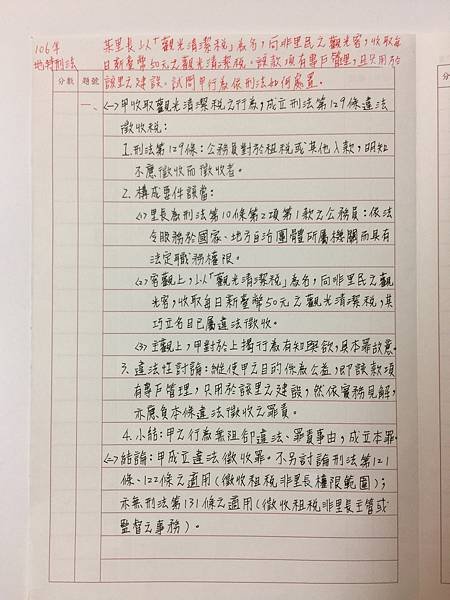 106年 某里長以「觀光清潔稅」為名,向非里民之觀光客,收取每
地特刑法 日新臺幣50元之觀光清潔稅。該款項有專戶管理,且只用於
分數 題號 該里之建設。試問甲行為依刑法如何處置。
一、 (一)甲收取觀光清潔稅之行為,成立刑法第129條違法
徵收稅:
1.刑法第129條:公務員對於租稅或其他入款,明知
不應徵收而徵收者。
2.構成要件該當:
(1)里長為刑法第10條第2項第1款之公務員:依法
令服務於國家、地方自治團體所屬機關而具有
法定職務權限。
(2)客觀上,以「觀光清潔稅」為名,向非里民之觀
光客,收取每日新臺幣50元之觀光清潔稅,其
巧立名目已屬違法徵收。
(3)主觀上,甲對於上揭行為有知與欲,具本罪故意。
3.違法性討論:縱使甲之目的係為公益,即該款項
有專戶管理,只用於該里之建設,然依實務見解,
亦應負本條違法徵收之罪責。
4.小結:甲之行為無阻卻違法、罪責事由,成立本罪。
(二)結論:甲成立違法徵收罪。不另討論刑法第121
條、122條之適用(徵收租稅非里長權限範圍);
亦無刑法第131條之適用(徵收租稅非里長主管或
監督之事務)。